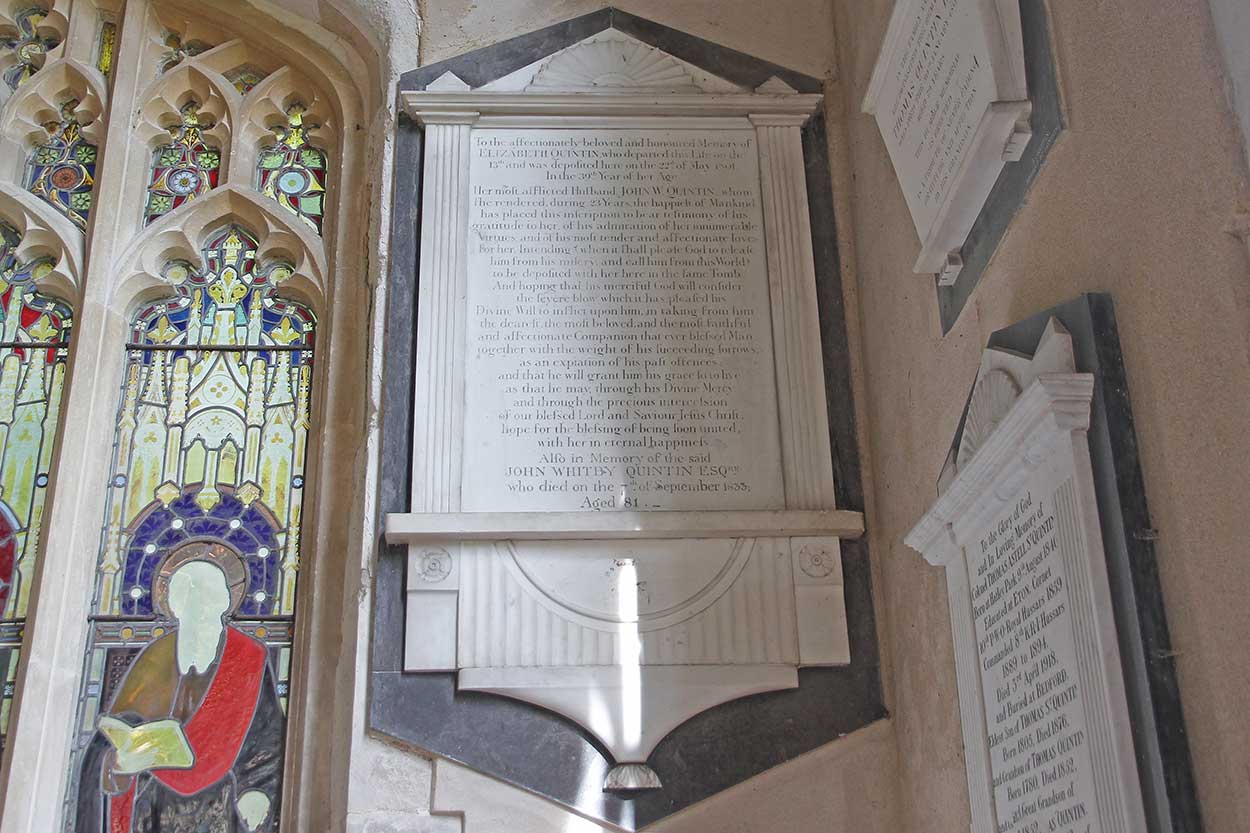 To the affectionately beloved and honoured Memory of
ELIZABETH QUINTIN, who departed this Life on the
13th and was deposited here on the 22d of May 1801
In the 39th Year of her Age
Her most afflicted Husband, JOHN W. QUINTIN, whom
she rendered, during 23 Years, the happiest of Mankind
has placed this inscription to bear testimony of his
gratitude to her, of his admiration of her innumerable
Virtues, and of his most tender and affectionate love
for her. Intending, when it shall please God to release
him from his misery, and call him from this World
to be deposited with her here in the same Tomb
And hoping that his merciful God will consider
the severe blow which it has pleased his
Divine Will to inflict upon him, in taking from him
the dearest, the most beloved, and the most faithful
and affectionate Companion that ever blessed Man
together with the weight of his succeeding sorrows,
as an expiation of his past offences,
and that he will grant him his grace so to live
as that he may, through his Divine Mercy
and through the precious intercession
of our blessed Lord and Saviour Jesus Christ,
hope for the blessing of being soon united,
with her in eternal happiness.
Also in Memory of the said
JOHN WHITBY QUINTIN ESQRE
who died on the 7th of September 1833;
Aged 81.
THOMAS QUINTIN
To the Glory of God
and In Loving Memory of
Colonel THOMAS ASTELL St QUINTIN
Born at Hatley Park 9th August 1840
Educated at ETON. Cornet
10th P.W.O Royal Hussars 1859
Commanded 8th K.R.I Hussars
1889 to 1894.
Died 3rd April 1918.
and Buried at BEDFORD.
Eldest Son of THOMAS St QUINTIN
Born 1805. Died 1876.
and Grandson of THOMAS QUINTIN
Born 1780. Died 1852.
and Great Grandson of
QUINTIN